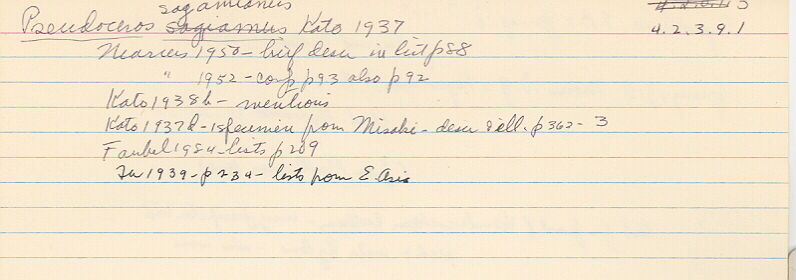 sagamianus
Pseudoceros sagiamus Kato 1937
4.2.3.9.1
Marcus 1950 - brief descr in list p88
" 1952 - comp p93 also p92
Kato 1938b - mentions
Kato 1937d - 1 specimen from Misaki - descr & ill. p 362-3
Faubel 1984 - lists p 209
Tu 1939 - p 234 - lists from E Asia